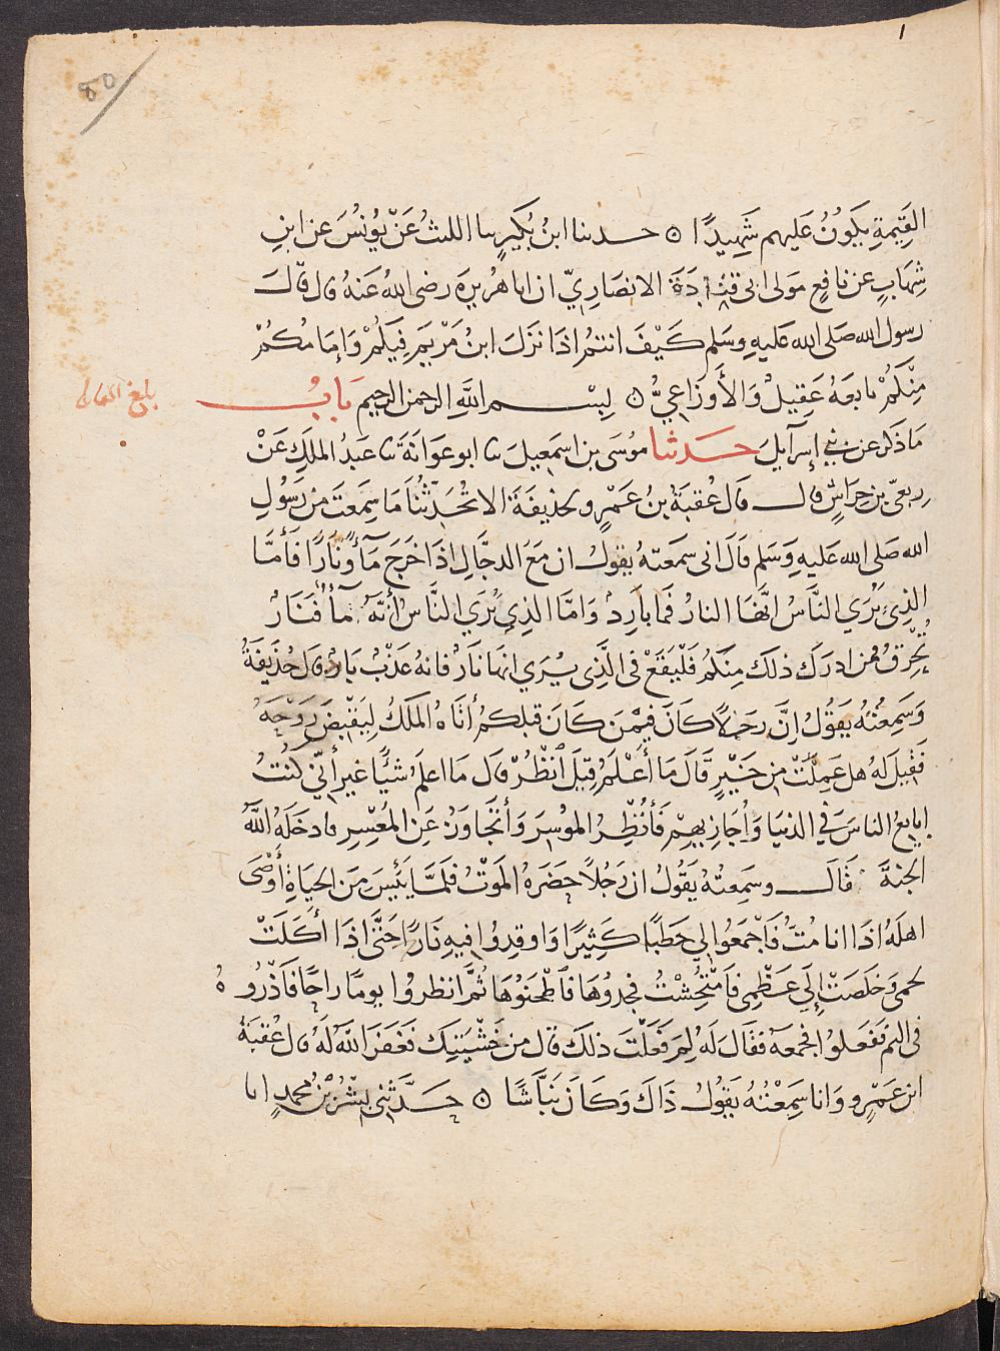 ١
80
القِيمةِ يكَونُ عَليهم شَهِيدًا ۝ حدثنا ابنُ بُكَيرٍ ثنا الليثُ عَنْ يُونُسَ عن ابنِ
شِهَابٍ عن نافِعٍ مَولى ابى قتادَةَ الانصَارِيّ ان اباهُرَيرَةَ رضى الله عَنهُ قال قَالَ
رسول الله صَلى الله عَليهِ وسَلم كَيْفَ انتمُ اذَا نَزَلَ ابنُ مَرْيَم فِيَكمُ وَإمَامُكمُ
مِنْكمُ تابعَهُ عَقِيلٌ وَالأَوزَاعِيُّ ۝ لِبِسْمِ اللَّهِ الرحمن الرحيم بَابُ
بلغ
مَا ذُكرَ عن بَنِي إسرآيلَ حَدثنا موُسَى بن اسمَعيلَ ثنا ابو عَوَانَةَ ثنا عَبدُ الملَكِ عَنْ
رِبعىّ بن حِرَاشٍ قال قَالَ عُقبَةُ بنُ عَمْرٍو لحذيفَةَ الا تُحَدّثُنَا مَا سِمَعتَ مِنْ رَسُولِ
الله صَلى الله عَليهِ وَسَلم قَالَ انى سَمعتهُ يقولُ ان مَعَ الدجَّالِ اذَا خَرَجَ مَآءً وَنَارًا فَأَمَّا
الذِى يَرَي النَّاسُ انَّهَا النارُ فَمَا بارِدٌ وَامَّا الذِي يَرَي النَّاس أَنَّهُ مآءٌ فَنَارٌ
تُحْرِقُ فمن ادرَك ذلكَ مِنكَمُ فَلْيَقَعْ فى الَّذِى يُرَي انهَا نَارٌ فانهُ عَذْبٌ بَارِدٌ قال حُذَيفَةُ
وَسَمِعْتُهُ يَقوُلُ إِنَّ رَجُلاً كَانَ فِيْمَن كَانَ قَبلكُم أتَاهُ المَلَكُ لِيَقْبِضَ رَوُحَهُ
فَقِيلَ لهُ هل عَمِلْتَ مِن خَيْرٍ قَالَ مَا أَعْلَمُ قِيلَ انْظُرْ قال مَا اعلمُ شَيْأً غير أَنّي كُنتُ
ابايعُ الناسَ في الدنيَا وَأُجَازِيهِمْ فَأُنْظِرُ الموُسِرَ وَأَتَجَاوَزُ عَنِ المُعْسِرِ فادخَلَهُ اللَّهُ
الجنةَ قَالَ وسَمِعتهُ يَقُولُ ان رَجُلاً حَضَرَهُ المَوْتُ فَلمَّا يَئِسَ مِنَ الحيَاةِ أَوْصَى
اهلَهُ اذَا انا مُتُّ فَاجْمَعُوا لِي حَطَبًا كثِيرًا وَاوقِدِوُا فيهِ نَارًا حَتَّى اذَا أكَلَتْ
لحمى وَخَلَصَتْ إِلَي عَظْمِى فَامْتُحِشْتُ فخِذُوُهَا فَاطْحَنوُهَا ثُمَّ انظروُا يومًا راحًا فَاذْرُوهُ
فى اليَم فَفعَلوُا فجمعَهُ فَقالَ لهُ لِمَ فَعَلْتَ ذلكَ قال مِن خَشْيَتِكَ فَغَفَرَ اللَّهُ لَهُ قال عُقبَةُ
ابن عَمْرٍو وَانا سَمِعْتُهُ يَقوُلُ ذَاكَ وَكَانَ نَبَّاشًا ۝ حَدَّثنى بِشْرُ بْنُ محمدٍ انا